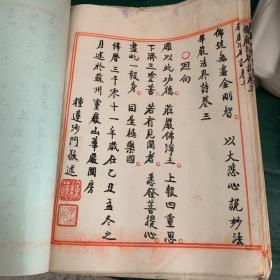 佛號無盡金剛智 以大悲心說妙法
華嚴法界詩卷三
○回向
願以此功德 莊嚴佛淨土 上報四重恩
下濟三塗苦 若有見聞者 悉發菩提心
盡此一報身 同生極樂國
佛曆三千零十一年歲在乙丑孟冬之
月述於蘇州靈巖山華嚴關房
種蓮沙門敬述